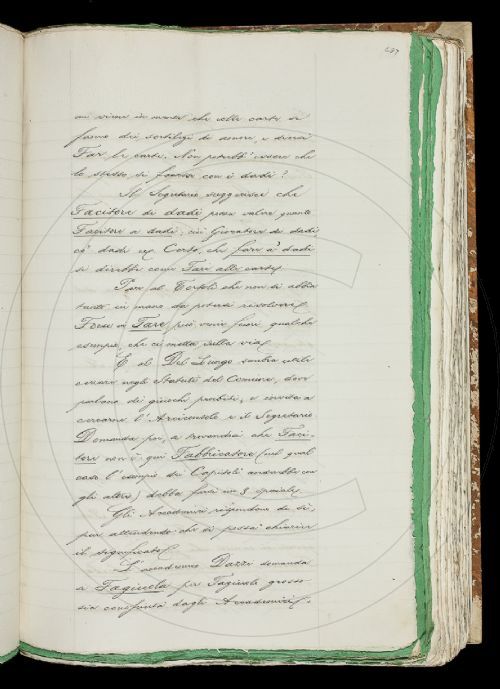 mi viene in mente che colle carte si
fanno dei sortilegi di amore, e dicesi
Far le carte. Non potrebb' essere che
lo stesso si facesse con i dadi?
Il Segretario suggerisce che
Facitore di dadi possa valere quanto
Facitore a dadi, cioè Giocatore di dadi
co' dadi ec. Certo, che fare a' dadi
si direbbe come Fare alle carte.
Pare al Tortoli che non si abbia
tanto in mano da potersi risolvere.
Forse a Fare può venir fuori qualche
esempio, che ci metta sulla via.
E al Del Lungo sembra utile
cercare negli Statuti del Comune, dove
parlano dei giuochi proibiti, e invita a
cercarne l'Arciconsolo e il Segretario
Domanda poi, a trovandosi che Faci-
tore non è qui Fabbricatore (nel qual
caso l'esempio dei Capitoli andrebbe con
gli altri) debba farsi un § speciale.
Gli Accademici rispondono di sì,
pur attendendo che si possa chiarire
il significato.
L'accademico Dazzi domanda
a Fagiuola per Fagiuolo grosso
sia
dagli Accademici